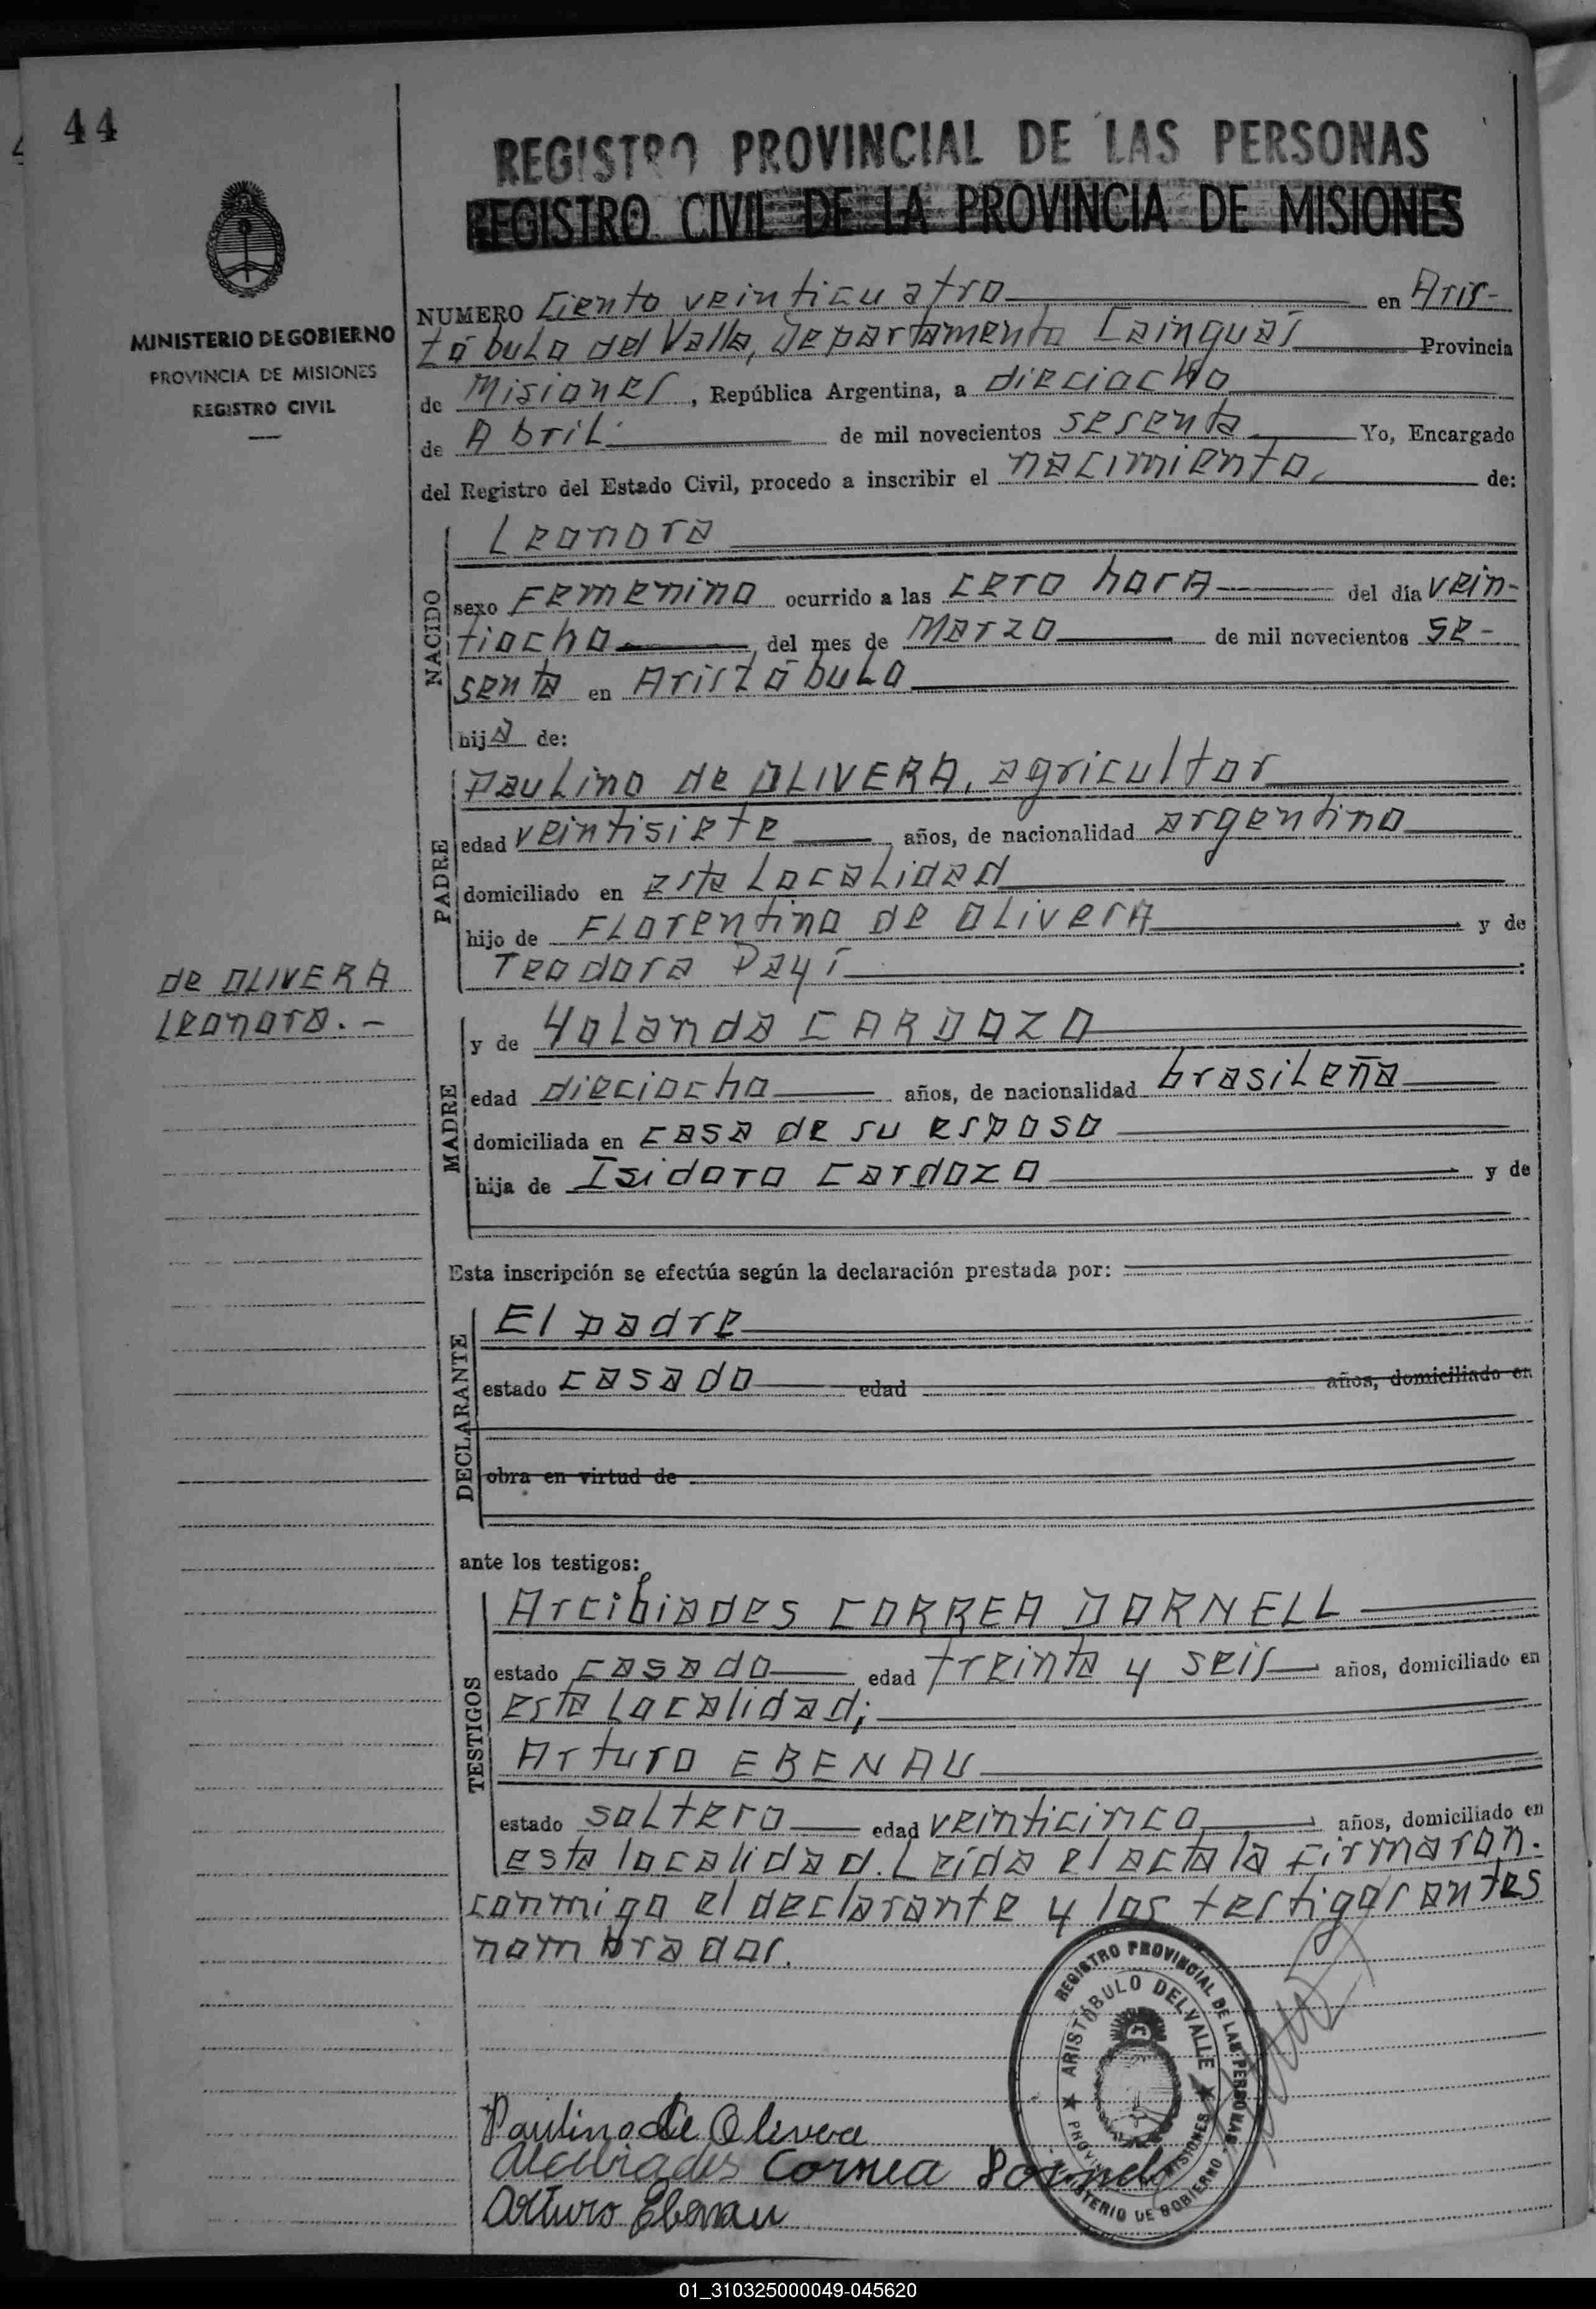 44
REGISTRO PROVINCIAL DE LAS PERSONAS
REGISTRO CIVIL DE LA PROVINCIA DE MISIONES
MINISTERIO DE GOBIERNO
PROVINCIA DE MISIONES
REGISTRO CIVIL
NUMERO Ciento veinticuatro en Aris-
tóbulo del Valle, Departamento Cainguás Provincia
de Misiones, República Argentina, a dieciocho
de Abril de mil novecientos sesenta Yo, Encargado
del Registro del Estado Civil, procedo a inscribir el nacimiento de:
NACIDO
Leonora
sexo Femenino ocurrido a las cero hora del día vein-
tiocho del mes de Marzo de mil novecientos se-
senta en Aristóbulo
hija de:
PADRE
Paulino de OLIVERA, agricultor
edad veintisiete años, de nacionalidad argentino
domiciliado en esta localidad
hijo de Florentino de Olivera y de
Teodora Payí
de OLIVERA
Leonora.-
MADRE
y de Yolanda CARDOZO
edad dieciocho años, de nacionalidad brasileña
domiciliada en casa de su esposo
hija de Isidoro Cardozo y de
Esta inscripción se efectúa según la declaración prestada por:
DECLARANTE
El padre
estado casado edad años, domiciliado en
obra en virtud de
ante los testigos:
TESTIGOS
Arcibiades CORREA DORNELL
estado casado edad treinta y seis años, domiciliado en
esta localidad;
Arturo EBENAU
estado soltero edad veinticinco años, domiciliado en
esta localidad. Leída el acta la firmaron
conmigo el declarante y los testigos antes
nombrados.
REGISTRO PROVINCIAL DE LAS PERSONAS
ARISTÓBULO DEL VALLE
PROVINCIA DE MISIONES
MINISTERIO DE GOBIERNO
Paulino de Olivera
Alcibiades Correa Dornel
Arturo Ebenau
01_310325000049-045620